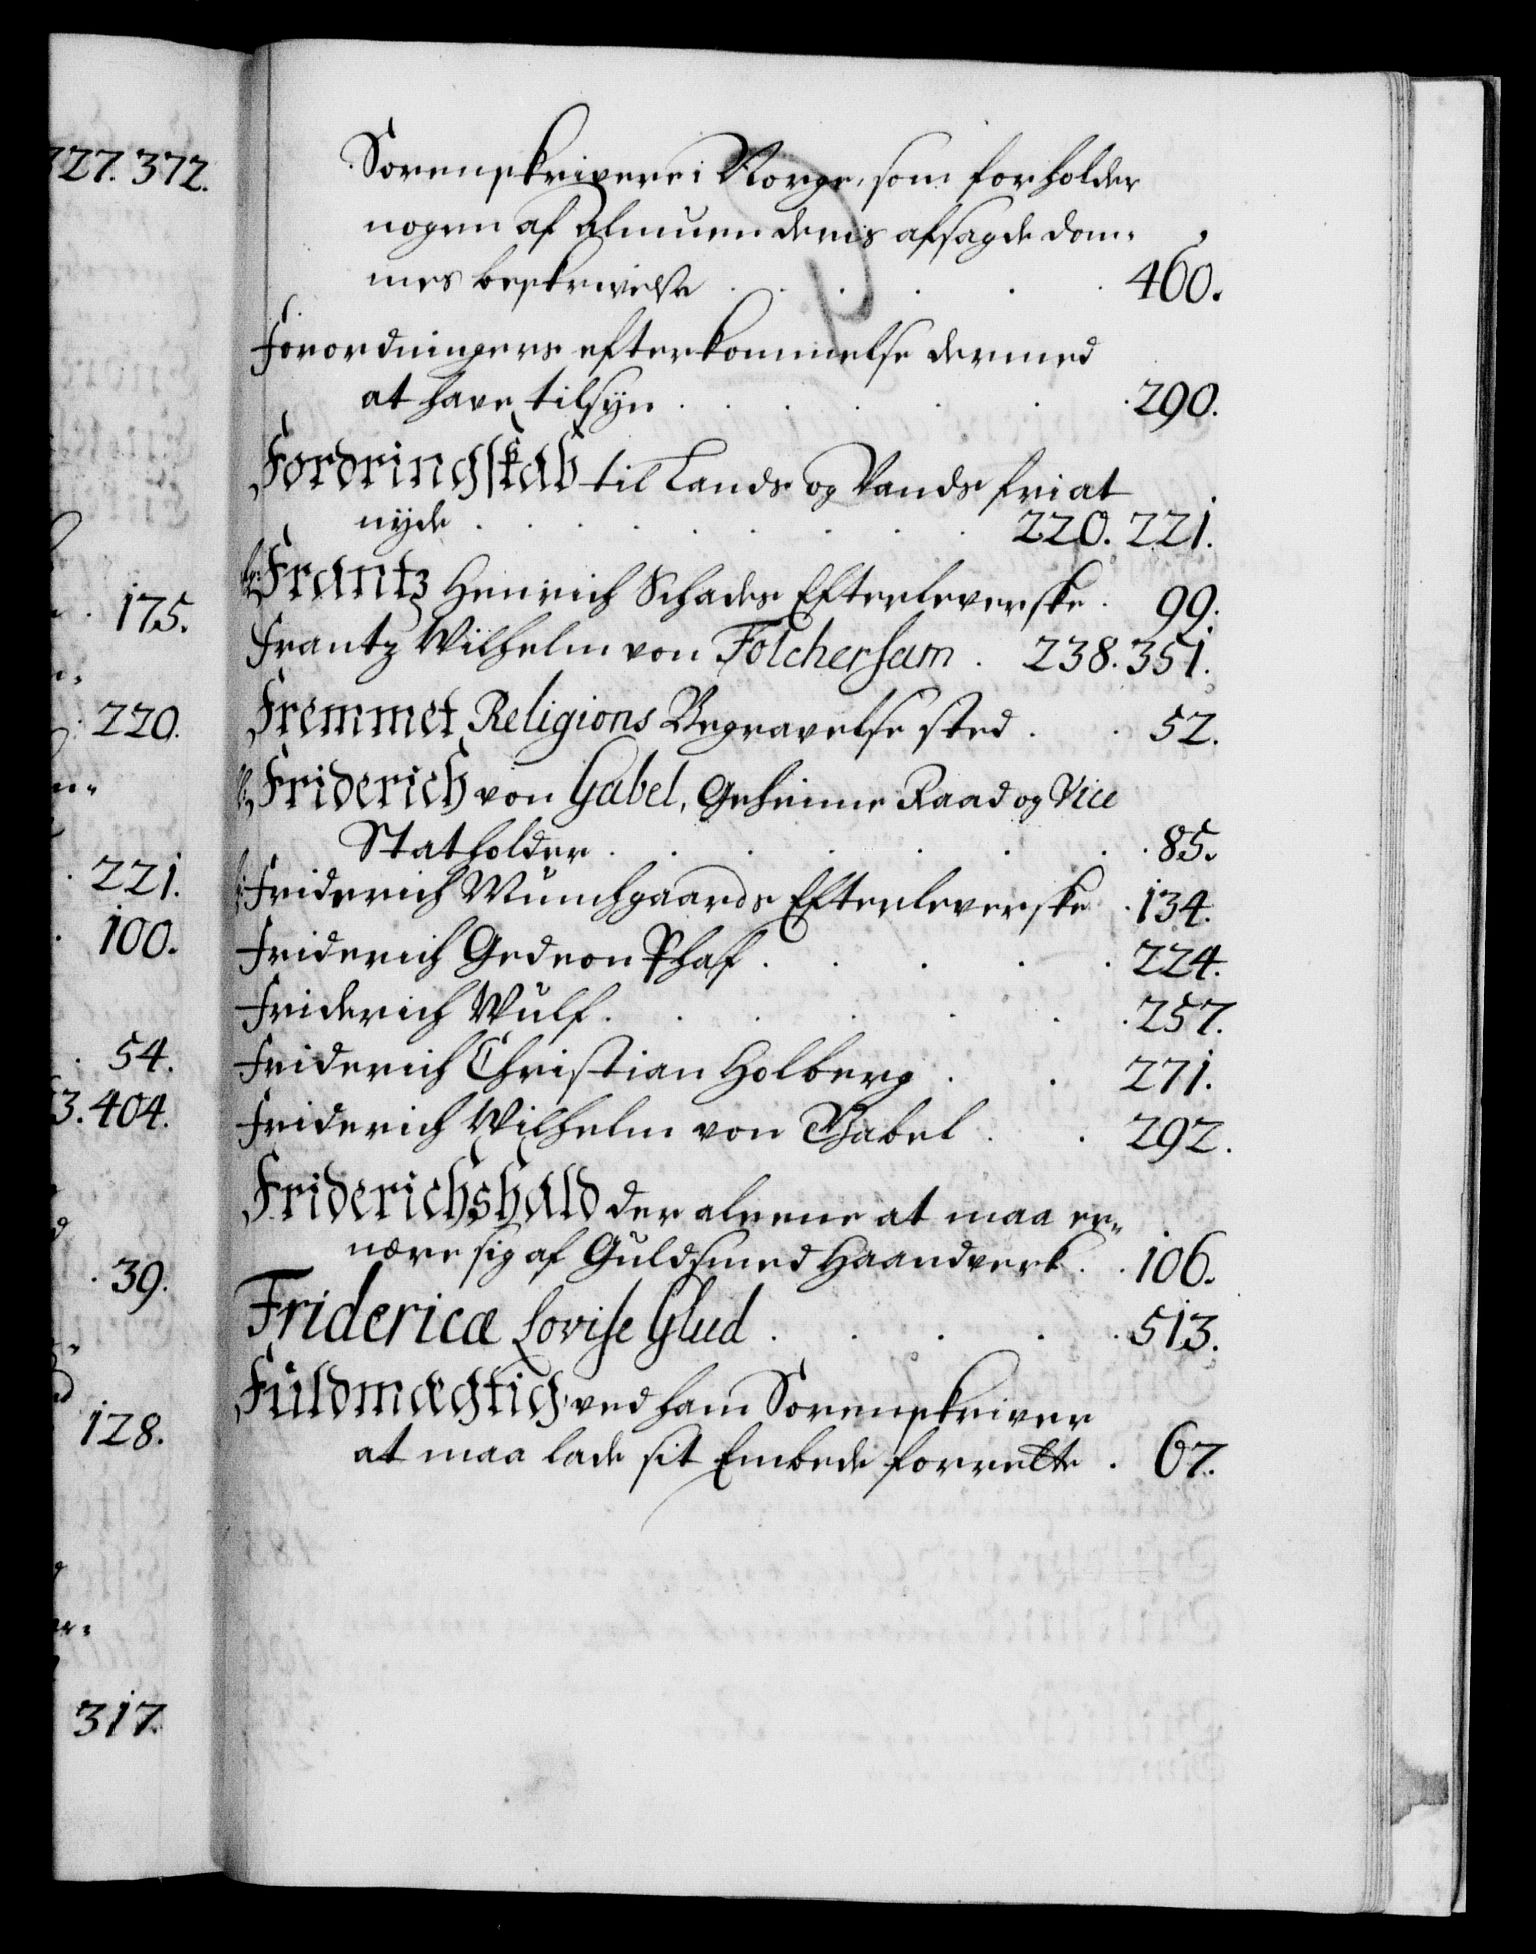 727. 372.
175.
220.
221.
100.
54.
3. 404.
39.
128.
317.
Sorenskrivere i Norge, som forholder
nogen af Almuen deris afsagde dom-
mes beskrivelse . . . . . 460.
Forordningers efterkommelse dermed
at have tilsyn . . . . . 290.
Fordringskab til Lands og Vands fri at
nyde . . . . . 220. 221.
Frantz Henrich Schades Efterleverske . 99.
Frantz Wilhelm von Folchersam . 238. 351.
Fremmet Religions Begravelse sted . . 52.
Friderich von Gabel, Geheime Raad og Vice
Statholder . . . . . 85.
Friderich Munchgaards Efterleverske . 134.
Friderich Gedeon Phaf . . . . 224.
Friderich Wulf . . . . . 257.
Friderich Christian Holberg . . 271.
Friderich Wilhelm von Gabel . . 292.
Friderichshald der aleene at maa er-
nære sig af Guldsmed Haandverk . . 106.
Fridericæ Lovise Glud . . . . . 513.
Fuldmægtig, ved ham Sorenskriver
at maa lade sit Embede forrette . 67.